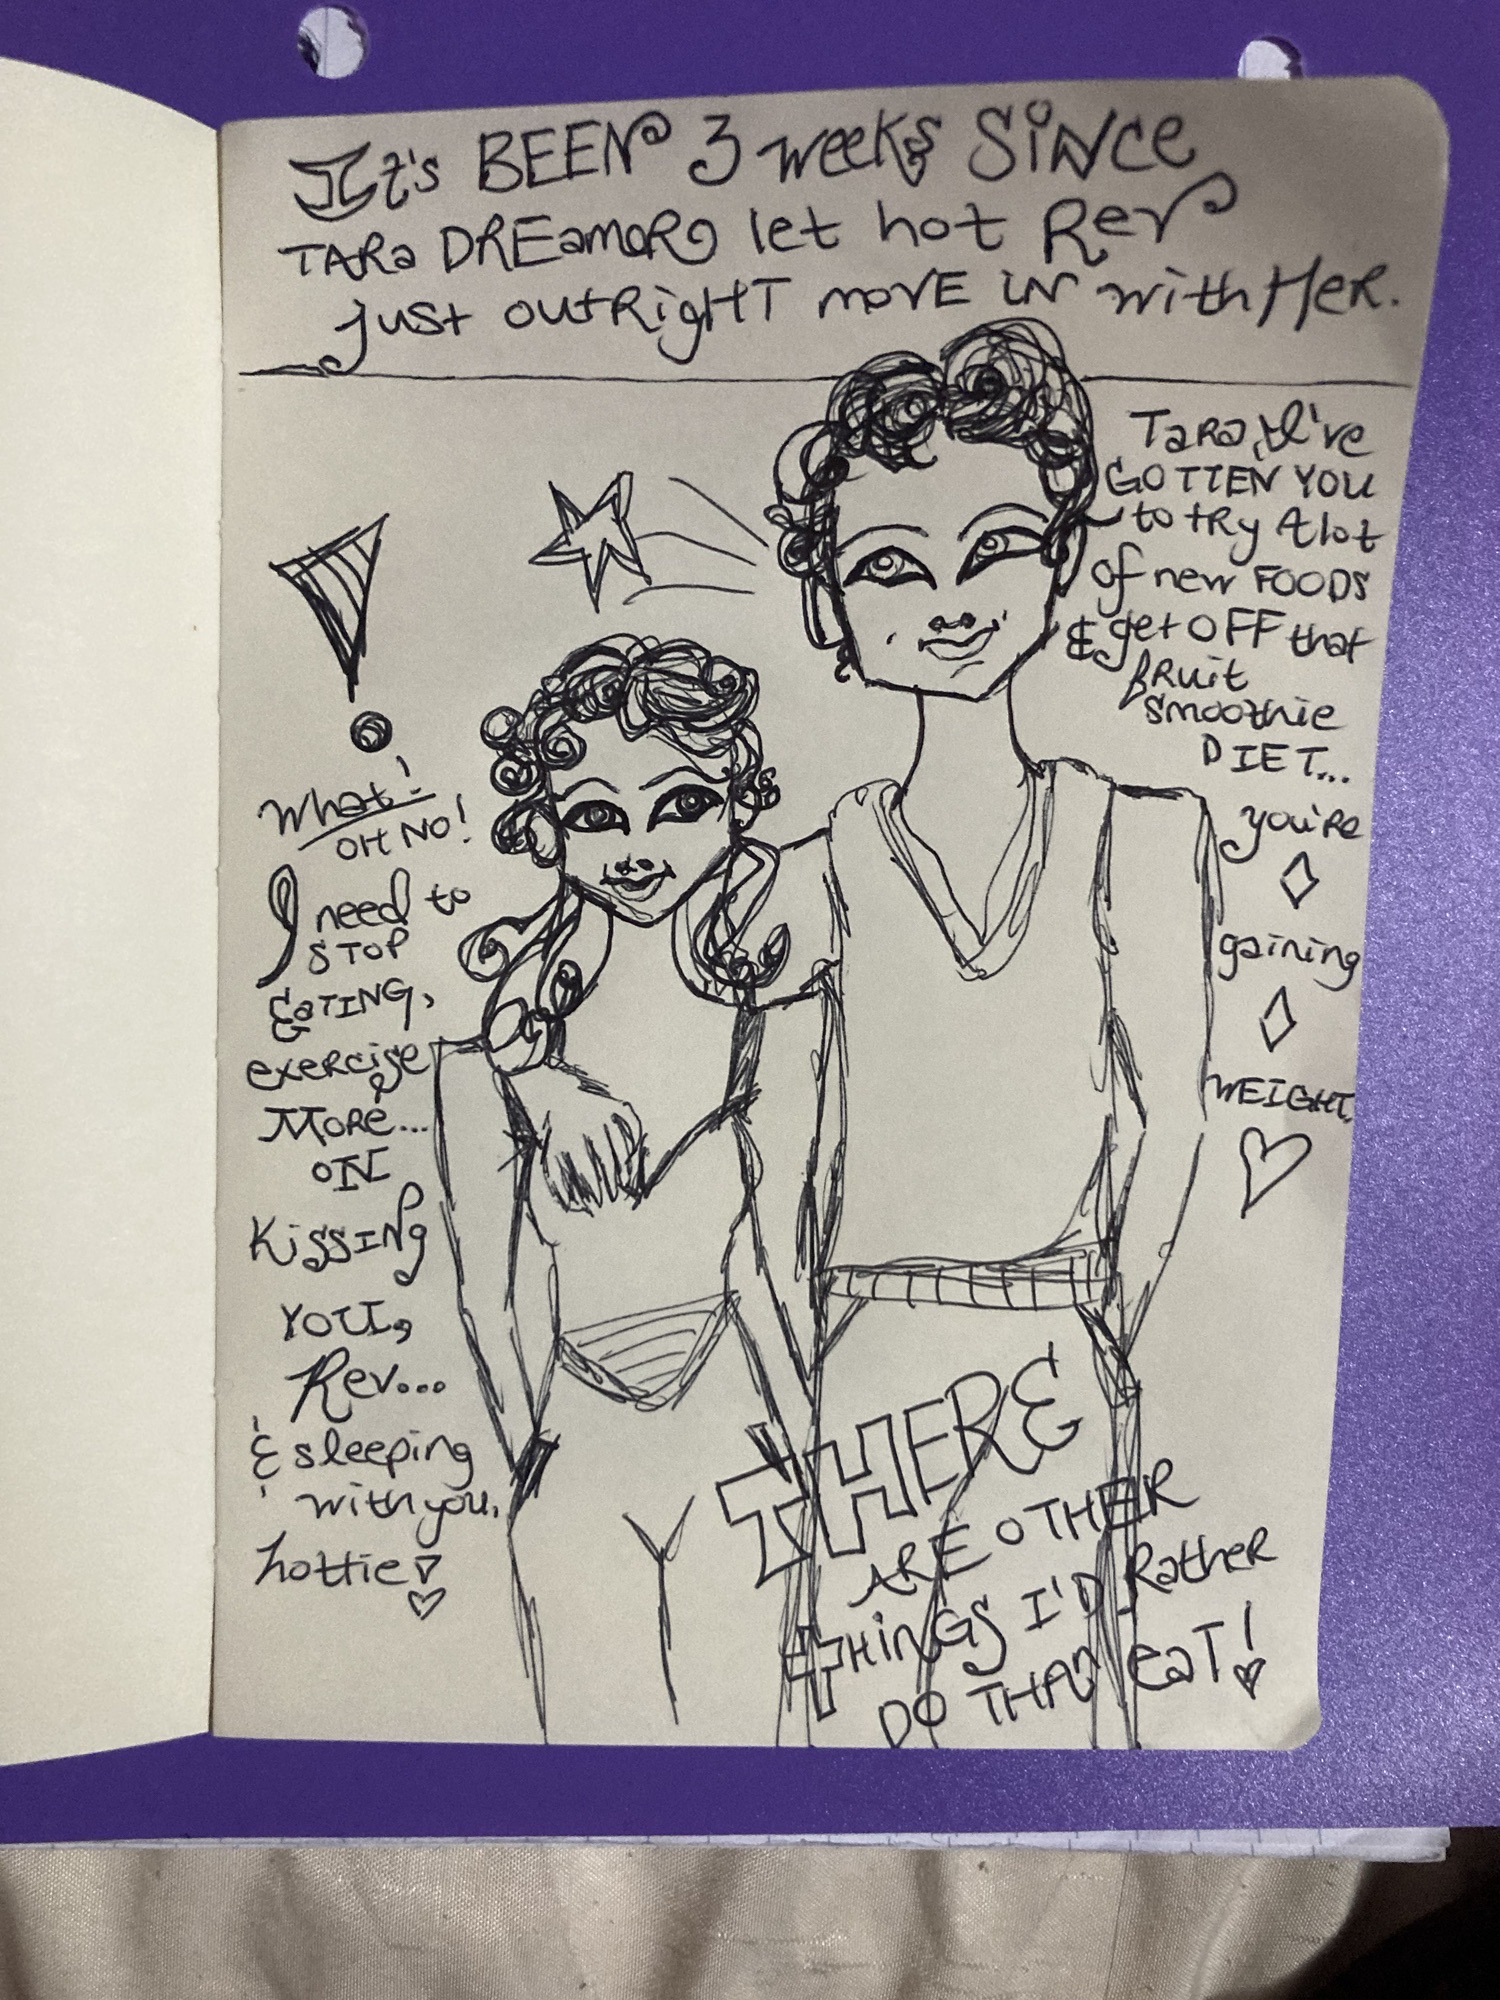 It's BEEN 3 weeks Since
TARa DREamOR let hot Rev
just outRigHT movE IN with HeR.
TaRa, I've
GOTTEN YOU
to tRy A lot
of new FOODS
& get OFF that
fRuit
Smoothie
DIET...
you're
gaining
WEIGHT.
What!
OH NO!
I need to
STOP
EaTING,
exeRcise
MoRe...
ON
KissiNg
YOU,
Rev...
& sleeping
with you,
hottie!
THERE
ARE OTHER
THiNGS I'D Rather
DO THAN eaT!